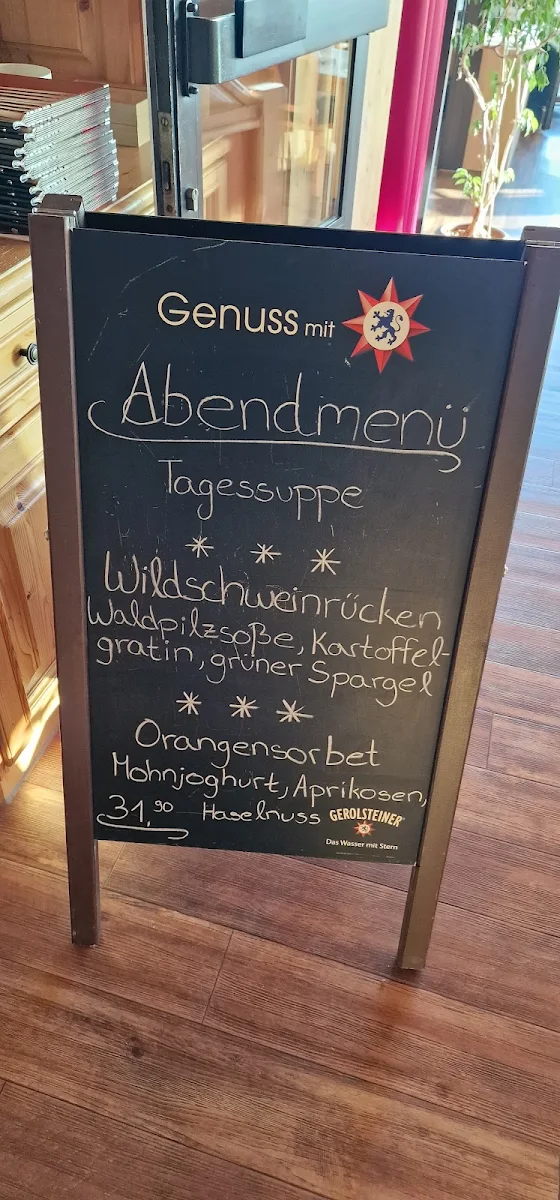 Genuss mit
Abendmenü
Tagessuppe
* * *
Wildschweinrücken
Waldpilzsoße, Kartoffel-
gratin, grüner Spargel
* * *
Orangensorbet
Mohnjoghurt, Aprikosen,
31,90 Haselnuss
GEROLSTEINER
Das Wasser mit Stern